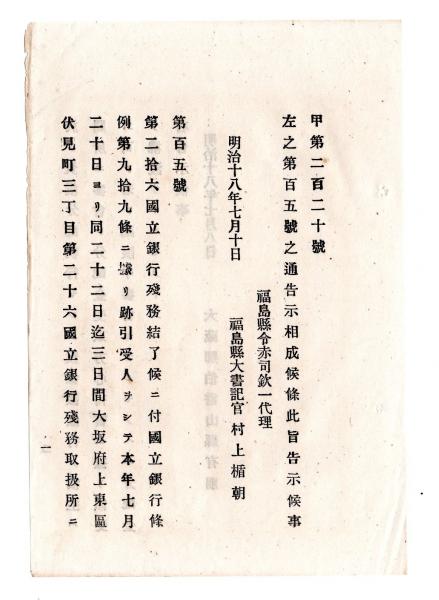 甲第二百二十號
左之第百五號之通告示相成候條此旨告示候事
福島縣令赤司欽一代理
明治十八年七月十日　福島縣大書記官　村上楯朝
第百五號
第二拾六國立銀行殘務結了候ニ付國立銀行條
例第九拾九條ニ據リ跡引受人ヲシテ本年七月
二十日ヨリ同二十二日迄三日間大坂府上東區
伏見町三丁目第二十六國立銀行殘務取扱所ニ
一